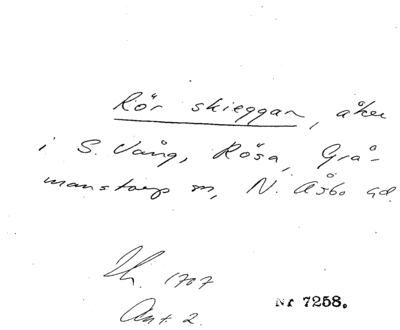 Rör skieggan, åker
i S. Vång, Rösa, Grå-
manstorp sn, N. Åsbo hd.
Lh. 1707
Akt. 2.
Nr 7258.